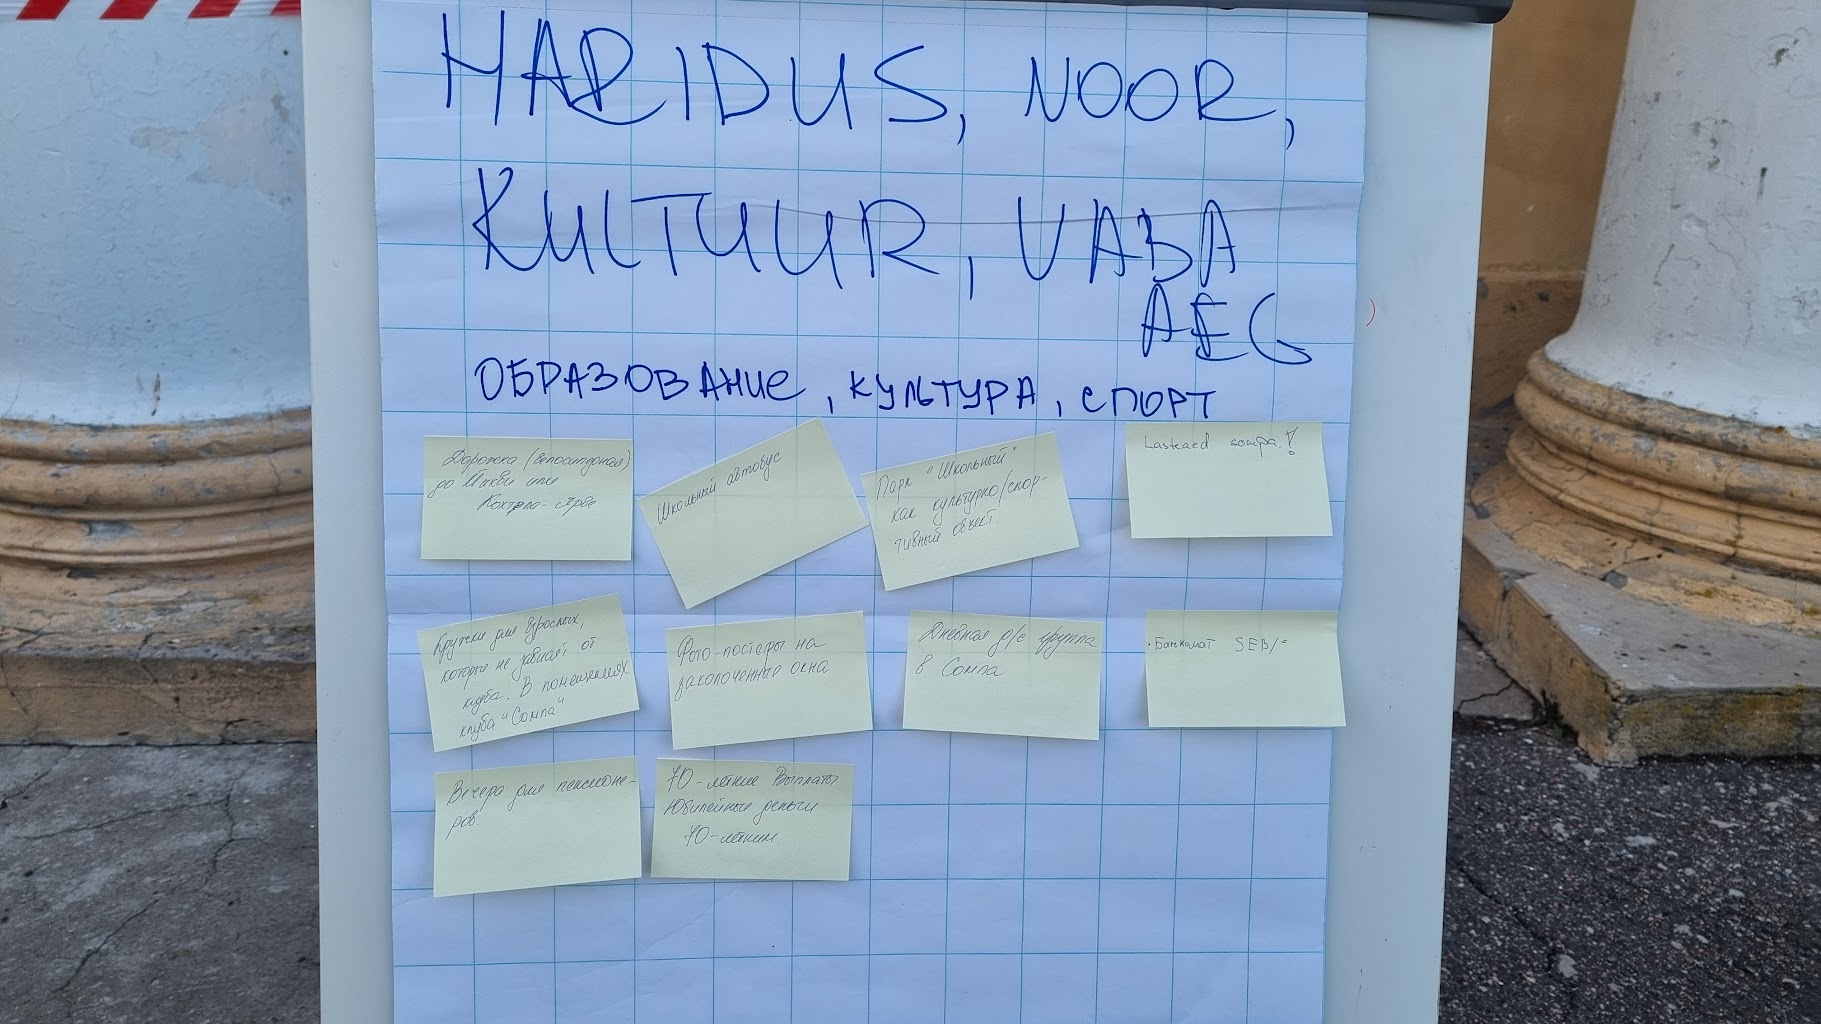 HARIDUS, NOOR,
KULTUUR, VABA
AEG
ОБРАЗОВАНИЕ, КУЛЬТУРА, СПОРТ
Дорожка (велосипедная)
до Йыхви или
Кохтла-Ярве
Школьный автобус
Парк "Школьный"
как культурно/спор-
тивный объект.
Lasteaed sompa!
Кружки для взрослых,
которые не зависят от
клуба. В помещениях
клуба "Сомпа"
Фото-постеры на
заколоченные окна
Дневная д/с группа
в Сомпа
Банкомат SEB/
Вечера для пенсионе-
ров.
70-летние Выплаты
Юбилейные деньги
70-летним